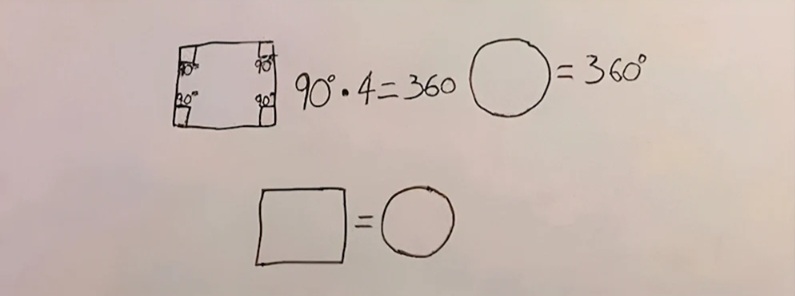 90° 90°
90° 90°
90° · 4 = 360
= 360°
=